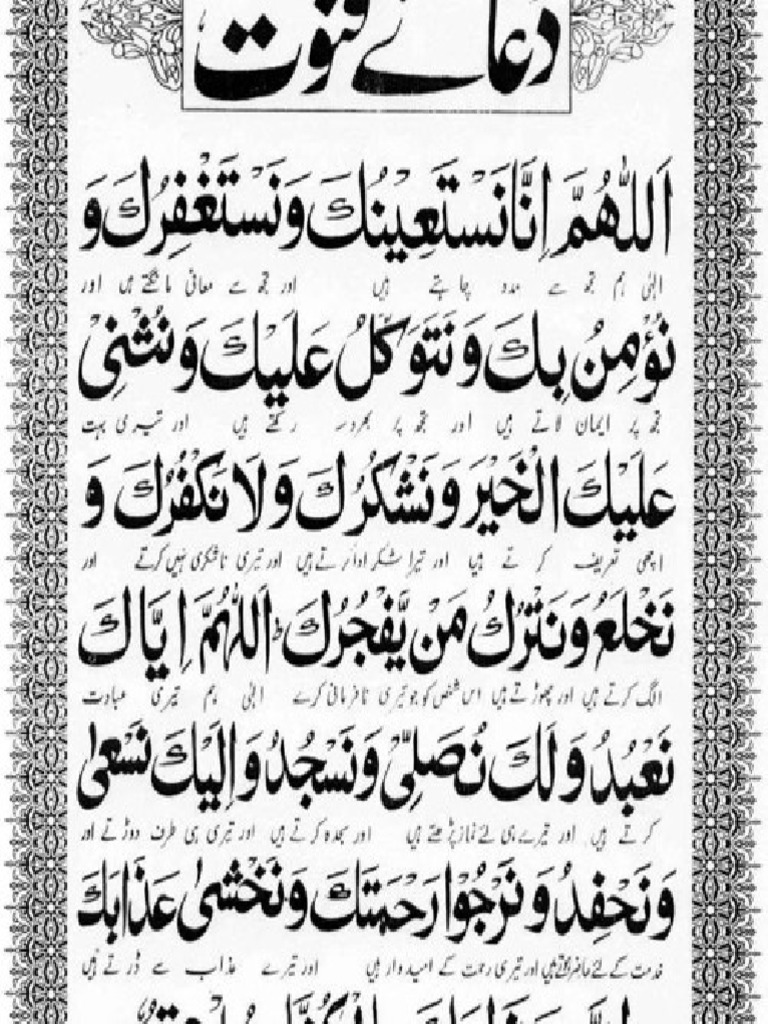 دعائے قنوت
اَللّٰهُمَّ اِنَّا نَسْتَعِيْنُكَ وَنَسْتَغْفِرُكَ وَ
الٰہی ہم تجھ سے مدد چاہتے ہیں اور تجھ سے معافی مانگتے ہیں اور
نُؤْمِنُ بِكَ وَنَتَوَكَّلُ عَلَيْكَ وَنُثْنِيْ
تجھ پر ایمان لاتے ہیں اور تجھ پر بھروسہ رکھتے ہیں اور تیری بہت
عَلَيْكَ الْخَيْرَ وَنَشْكُرُكَ وَلَا نَكْفُرُكَ وَ
اچھی تعریف کرتے ہیں اور تیرا شکر ادا کرتے ہیں اور تیری ناشکری نہیں کرتے اور
نَخْلَعُ وَنَتْرُكُ مَنْ يَّفْجُرُكَ ؕ اَللّٰهُمَّ اِيَّاكَ
الگ کرتے ہیں اور چھوڑتے ہیں اس شخص کو جو تیری نافرمانی کرے الٰہی ہم تیری عبادت
نَعْبُدُ وَلَكَ نُصَلِّيْ وَنَسْجُدُ وَاِلَيْكَ نَسْعٰى
کرتے ہیں اور تیرے ہی لئے نماز پڑھتے ہیں اور سجدہ کرتے ہیں اور تیری ہی طرف دوڑتے اور
وَنَحْفِدُ وَنَرْجُوْا رَحْمَتَكَ وَنَخْشٰى عَذَابَكَ
خدمت کے لئے حاضر ہوتے ہیں اور تیری رحمت کے امیدوار ہیں اور تیرے عذاب سے ڈرتے ہیں